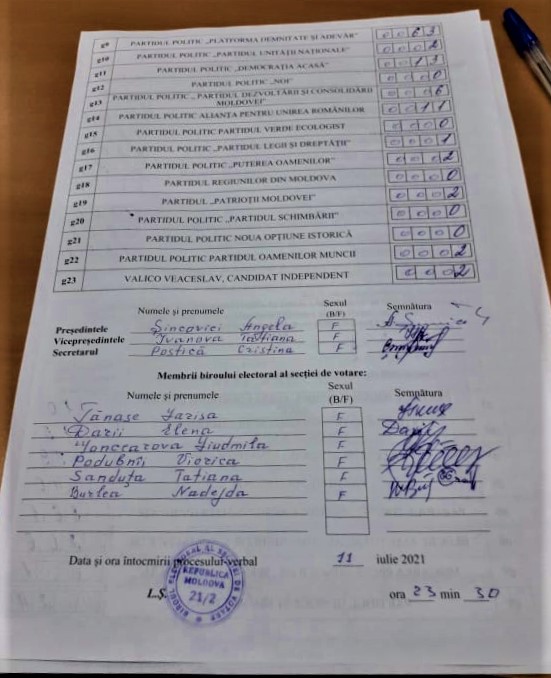 g9 PARTIDUL POLITIC „PLATFORMA DEMNITATE ȘI ADEVĂR" 0 0 6 3
g10 PARTIDUL POLITIC „PARTIDUL UNITĂȚII NAȚIONALE" 0 0 0 2
g11 PARTIDUL POLITIC „DEMOCRAȚIA ACASĂ" 0 0 1 3
g12 PARTIDUL POLITIC „NOI" 0 0 0 0
g13 PARTIDUL POLITIC „ PARTIDUL DEZVOLTĂRII ȘI CONSOLIDĂRII MOLDOVEI" 0 0 0 6
g14 PARTIDUL POLITIC ALIANȚA PENTRU UNIREA ROMÂNILOR 0 0 1 1
g15 PARTIDUL POLITIC PARTIDUL VERDE ECOLOGIST 0 0 0 0
g16 PARTIDUL POLITIC „PARTIDUL LEGII ȘI DREPTĂȚII" 0 0 0 1
g17 PARTIDUL POLITIC „PUTEREA OAMENILOR" 0 0 0 2
g18 PARTIDUL REGIUNILOR DIN MOLDOVA 0 0 0 0
g19 PARTIDUL „PATRIOȚII MOLDOVEI" 0 0 0 2
g20 PARTIDUL POLITIC „PARTIDUL SCHIMBĂRII" 0 0 0 0
g21 PARTIDUL POLITIC NOUA OPȚIUNE ISTORICĂ 0 0 0 0
g22 PARTIDUL POLITIC PARTIDUL OAMENILOR MUNCII 0 0 0 2
g23 VALICO VEACESLAV, CANDIDAT INDEPENDENT 0 0 0 2
Numele și prenumele Sexul (B/F) Semnătura
Președintele Șincovici Angela F
Vicepreședintele Ivanova Tatiana F
Secretarul Postică Cristina F
Membrii biroului electoral al secției de votare:
Numele și prenumele Sexul (B/F) Semnătura
Tănase Larisa F
Darii Elena F Darii
Goncearova Liudmila F
Podubnîi Viorica F
Sanduța Tatiana F
Burlea Nadejda F
Data și ora întocmirii procesului-verbal 11 iulie 2021
L.Ș. ora 23 min 30
REPUBLICA
MOLDOVA
21/2